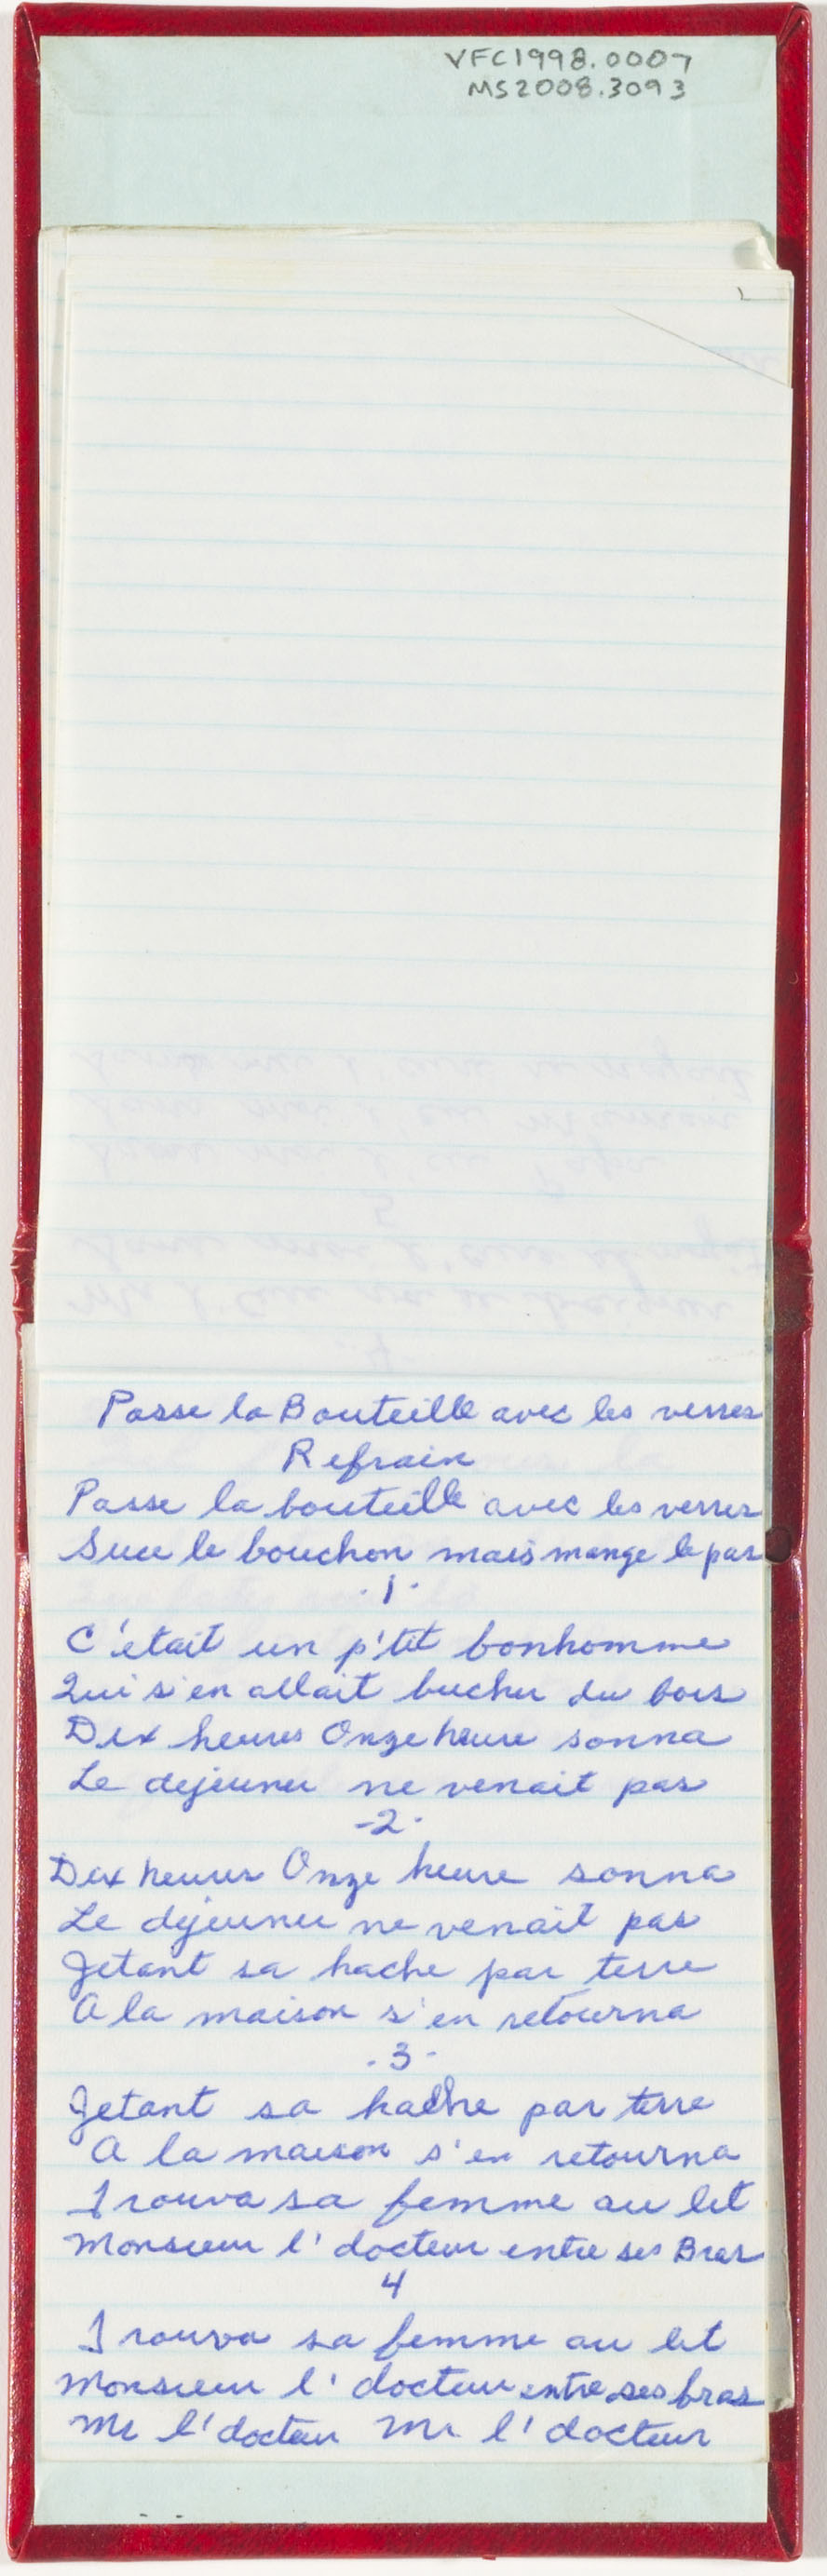 VFC1998.0007
MS2008.3093
Passe la Bouteille avec les verres
Refrain
Passe la bouteille avec les verres
Suce le bouchon mais mange le pas
.1.
C'était un p'tit bonhomme
Qui s'en allait bucher du bois
Dix heures Onze heure sonna
Le dejeuner ne venait pas
-2-
Dix heures Onze heure sonna
Le dejeuner ne venait pas
Jetant sa hache par terre
A la maison s'en retourna
.3-
Jetant sa hache par terre
A la maison s'en retourna
Trouva sa femme au lit
Monsieur l'docteur entre ses Bras
4
Trouva sa femme au lit
Monsieur l'docteur entre ses bras
Mr l'docteur Mr l'docteur